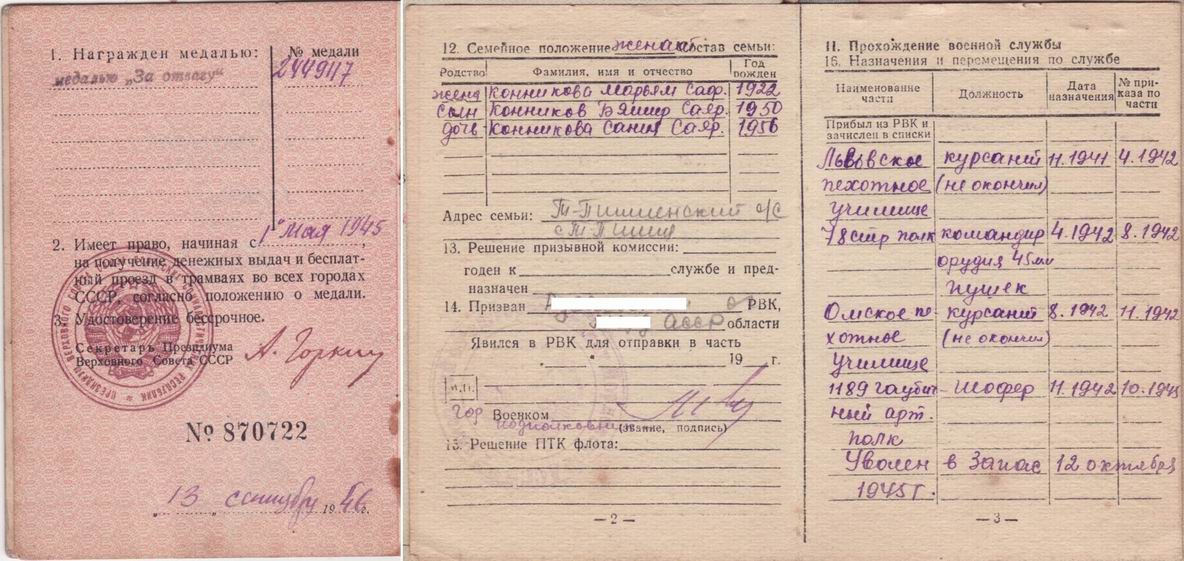 1. Награжден медалью:
№ медали
медалью „За отвагу“
2449117
2. Имеет право, начиная с 1го Мая 1945,
на получение денежных выдач и бесплат-
ный проезд в трамваях во всех городах
СССР, согласно положению о медали.
3. Удостоверение бессрочное.
Секретарь Президиума
Верховного Совета СССР
А. Горкин
№ 870722
„13 сентября 1946г.
12. Семейное положение женат Состав семьи:
Родство Фамилия, имя и отчество Год рожден
жена Конникова Марьям Саф. 1922
сын Конников Вямир Саяр. 1950
дочь Конникова Сания Саяр. 1956
Адрес семьи: Т-Пишленский с/С
с Т Пишля
13. Решение призывной комиссии:
годен к службе и пред-
назначен
14. Призван РВК,
АССР области
Явился в РВК для отправки в часть
„ “ 19 г.
М.П.
Гор Военком
подполковник (звание, подпись)
15. Решение ПТК флота:
— 2 —
II. Прохождение военной службы
16. Назначения и перемещения по службе
Наименование части Должность Дата назначения № при-каза по части
Прибыл из РВК и
зачислен в списки
Львовское курсант 11.1941 4.1942
пехотное (не окончил)
училище
78 стр полк командир 4.1942 8.1942
орудия 45мм
пушек
Омское пе- курсант 8.1942 11.1942
хотное (не окончил)
училище
1189 гаубич- шофер 11.1942 10.1945
ный арт.
полк
Уволен в запас 12 октября
1945 г.
— 3 —